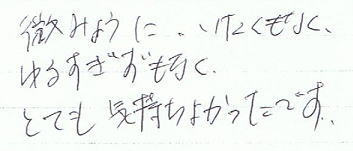 微みように、いたくもなく、
ゆるすぎずもなく、
とても気持ちよかったです。